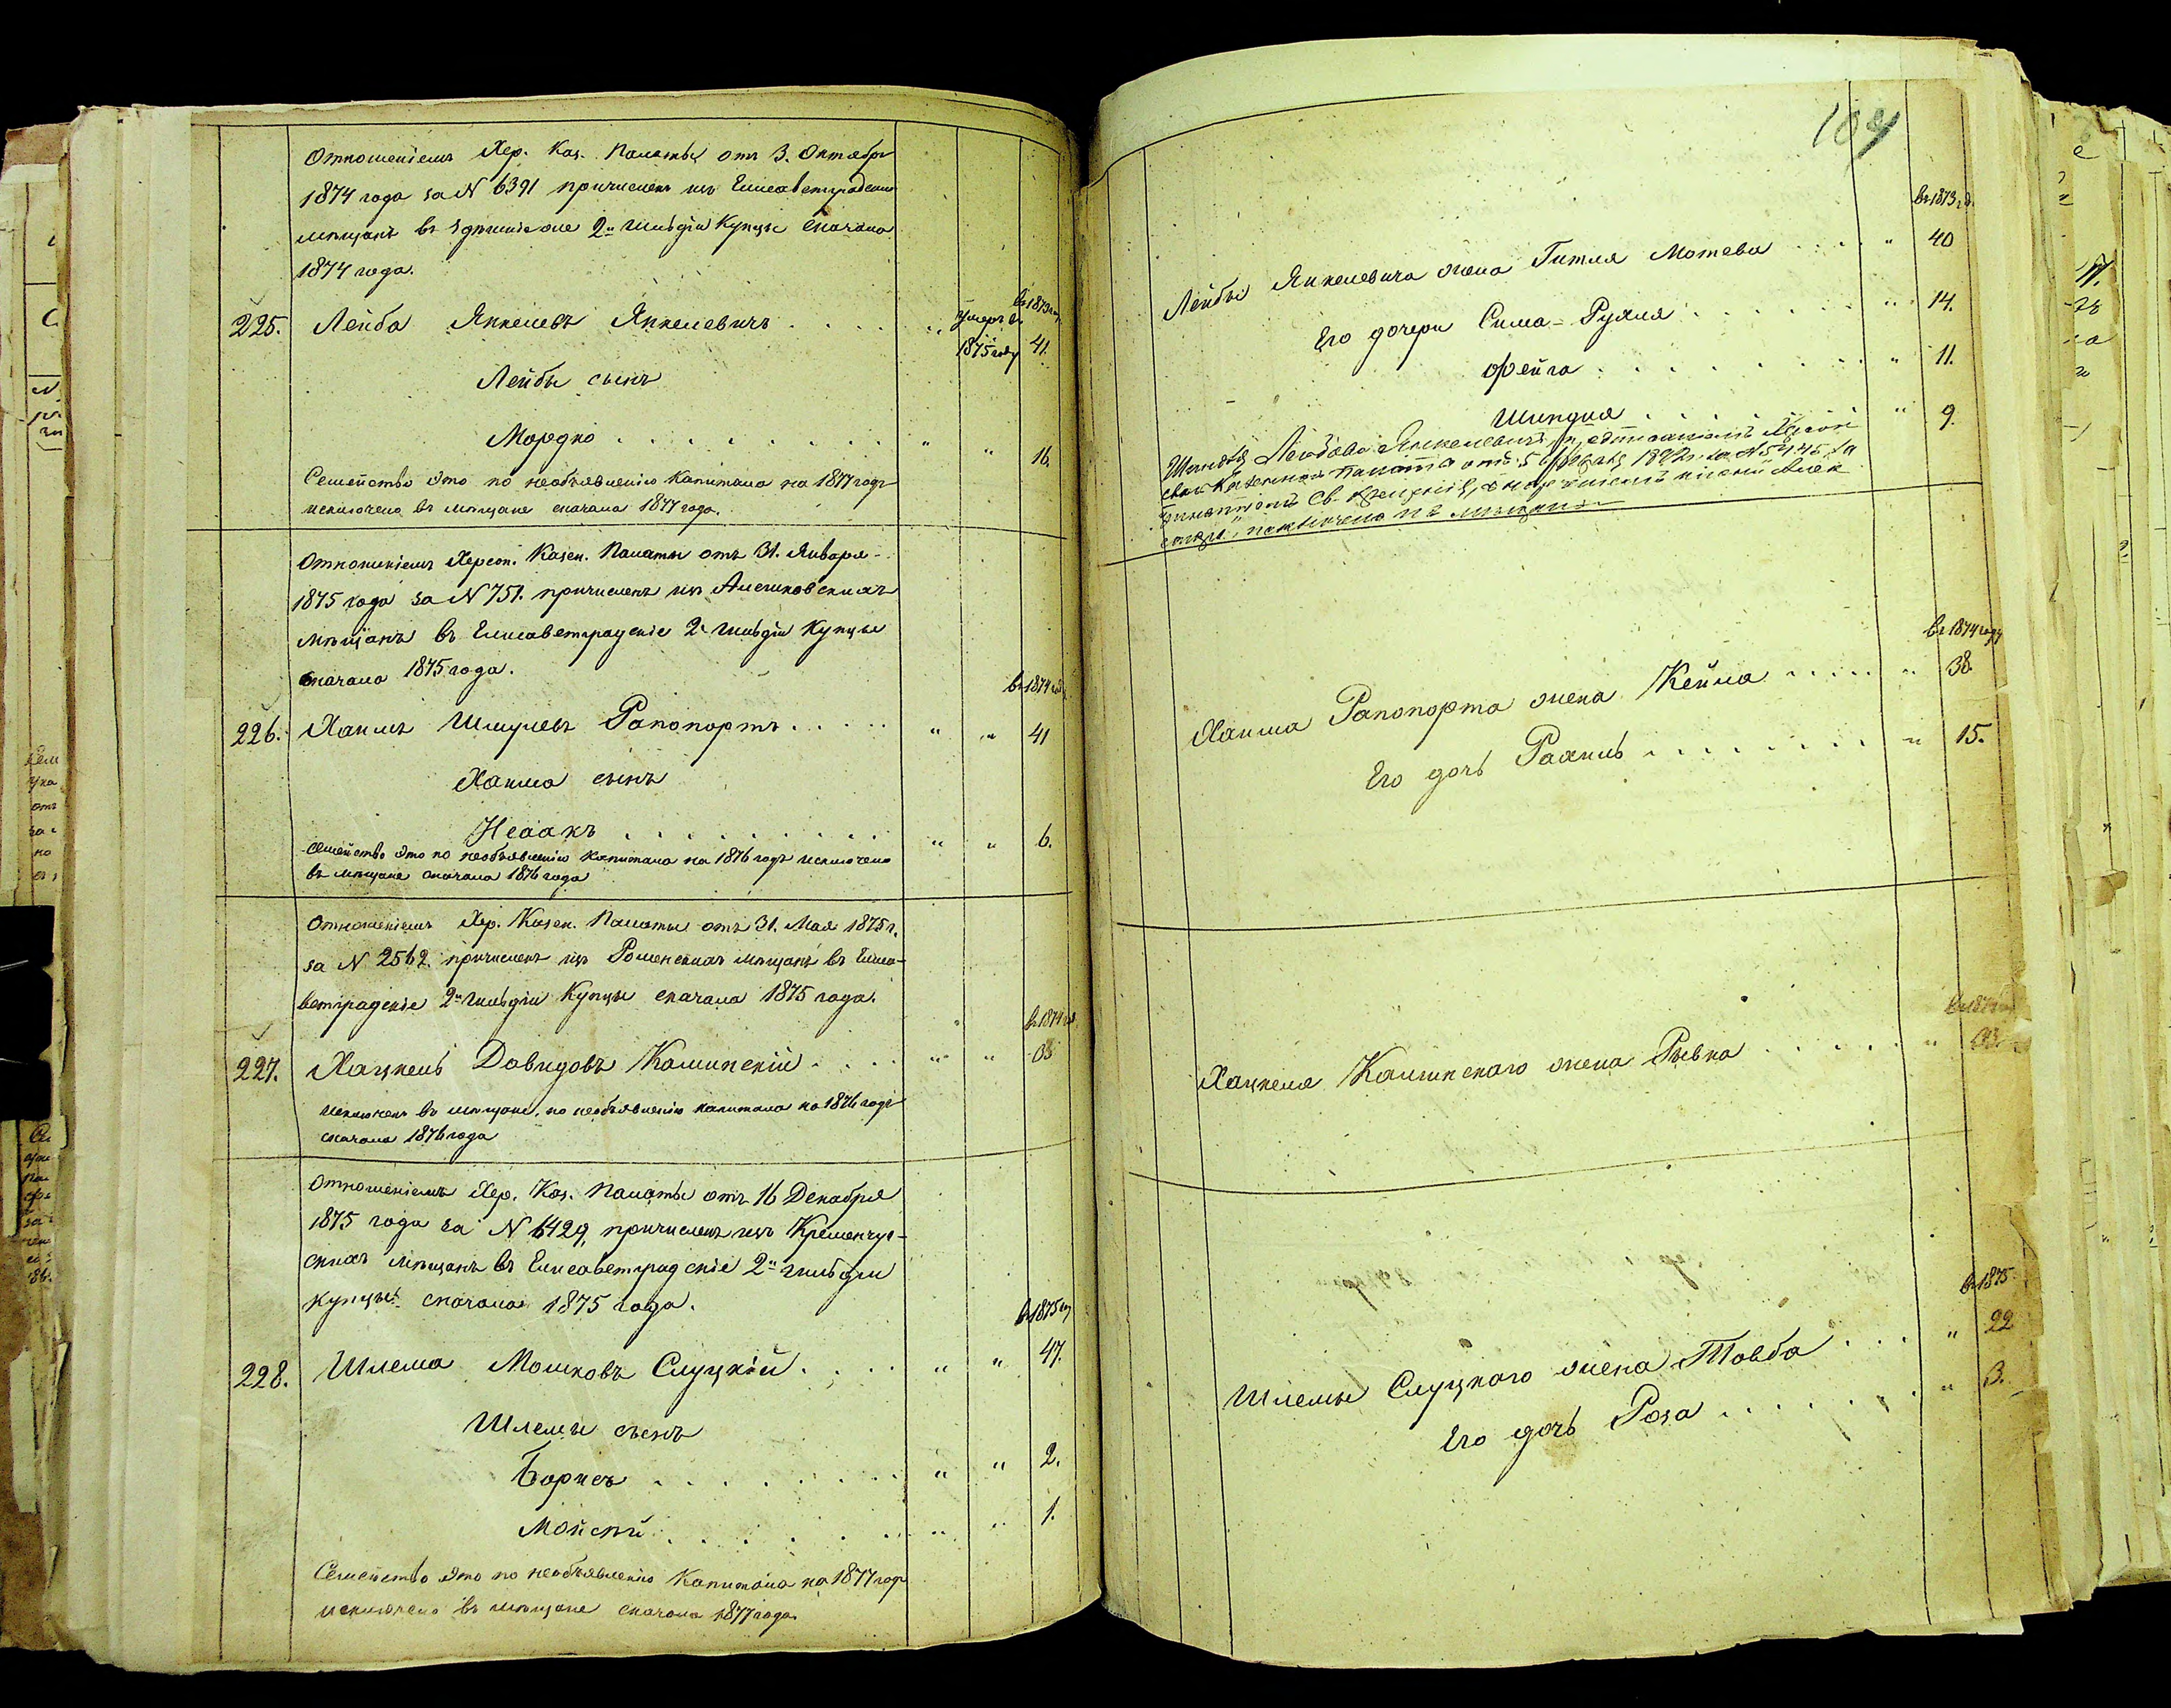 Отношеніемъ Хер. Каз. Палаты отъ 3. Октября
1874 года за N 6391 причисленъ изъ Елисаветградских
мѣщанъ въ здѣшніе оне 2й гильдіи Купцы сначала
1874 года.
в 1873 году
225. Лейба Янкелевъ Янкелевичъ . . . . " умеръ въ 1875 году 41.
Лейбы сынъ
Мордко . . . . . . . . " " 16.
Семейство это по необъявленію Капитала на 1877 годъ
исключено въ мѣщане сначала 1877 года.
Отношеніемъ Херсон. Казен. Палаты отъ 31. Января
1875 года за N 751. причисленъ изъ Алешковскихъ
мѣщанъ въ Елисаветградскіе 2й гильдіи Купцы
сначала 1875 года.
в 1874 год
226. Хаимъ Шмулевъ Рапопортъ . . . . . " " 41
Хаима сынъ
Исаакъ . . . . . . . . . " " 6.
Семейство это по необъявленію капитала на 1876 годъ исключено
въ мѣщане сначала 1876 года
Отношеніемъ Хер. Казен. Палаты отъ 31. Мая 1875 г.
за N 2562. причисленъ изъ Роменскихъ мѣщанъ въ Елиса-
ветградскіе 2й гильдіи Купцы сначала 1875 года.
в 1874 год
227. Хацкель Давидовъ Калинскій . . . . " "
Исключенъ въ мѣщане, по необъявленію капитала на 1876 годъ
сначала 1876 года
Отношеніемъ Хер. Каз. Палаты отъ 16 Декабря
1875 года за N 6429, причисленъ изъ Кременчуг-
скихъ мѣщанъ въ Елисаветградскіе 2й гильдіи
купцы сначала 1875 года.
в 1875 году
228. Шлема Мошковъ Слуцкій . . . . " " 47.
Шлемы сынъ
Борисъ . . . . . . . . " " 2.
Мойсей . . . . . . . . " " 1.
Семейство это по необъявленію Капитала на 1877 годъ
исключено въ мѣщане сначала 1877 года.
104
в 1873 г.
Лейбы Янкелевича жена Гитля Мотева . . . . " 40
Его дочери Сима-Рухля . . . . . . " 14.
Фейга . . . . . . . . " 11.
Шиндля . . . . . . " 9.
Шиндля Лейбова Янкелевичъ, предписаніемъ Херсон
ской Казенной Палаты отъ 5 1892 г. за N 5445 за
принятіемъ Св. Крещенія, с нареченіемъ имени Алек
исключена изъ мѣщанъ
в 1874 году
Хаима Рапопорта жена Кейла . . . . . " 38.
Его дочь Рахиль . . . . . . . . " 15.
Хацкеля Калинскаго жена Ривка . . . . . "
в 1875
Шлемы Слуцкаго жена Товба . . . " 22
Его дочь Роза . . . . . . . " 3.